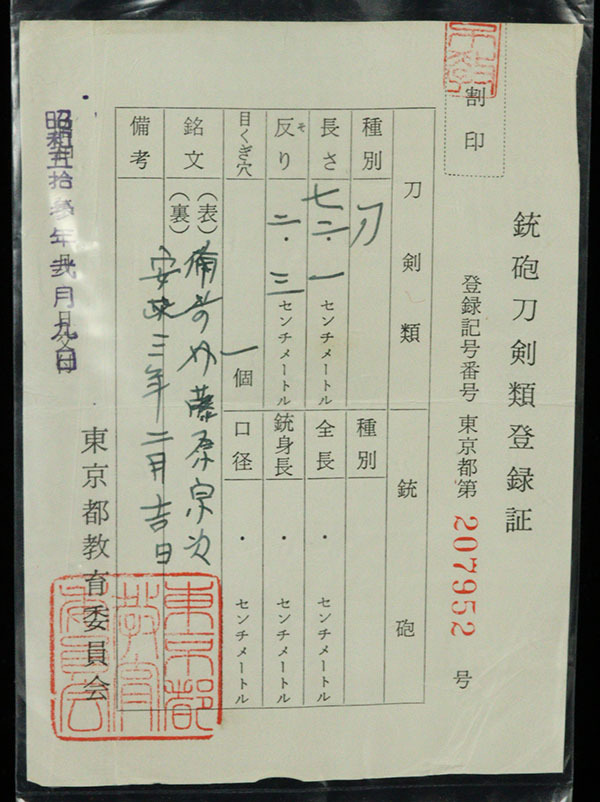 銃砲刀剣類登録証
登録記号番号 東京都第 207952 号
割印
刀剣類 銃砲
種別 刀 種別
長さ 七二・一 センチメートル 全長 ・ センチメートル
反り そ 二・三 センチメートル 銃身長 ・ センチメートル
目くぎ穴 一個 口径 ・ センチメートル
銘文 (表) 備前介藤原宗次
(裏) 安政三年二月吉日
備考
東京都教育委員会
東京都教育委員会
昭和五拾参年弐月九日